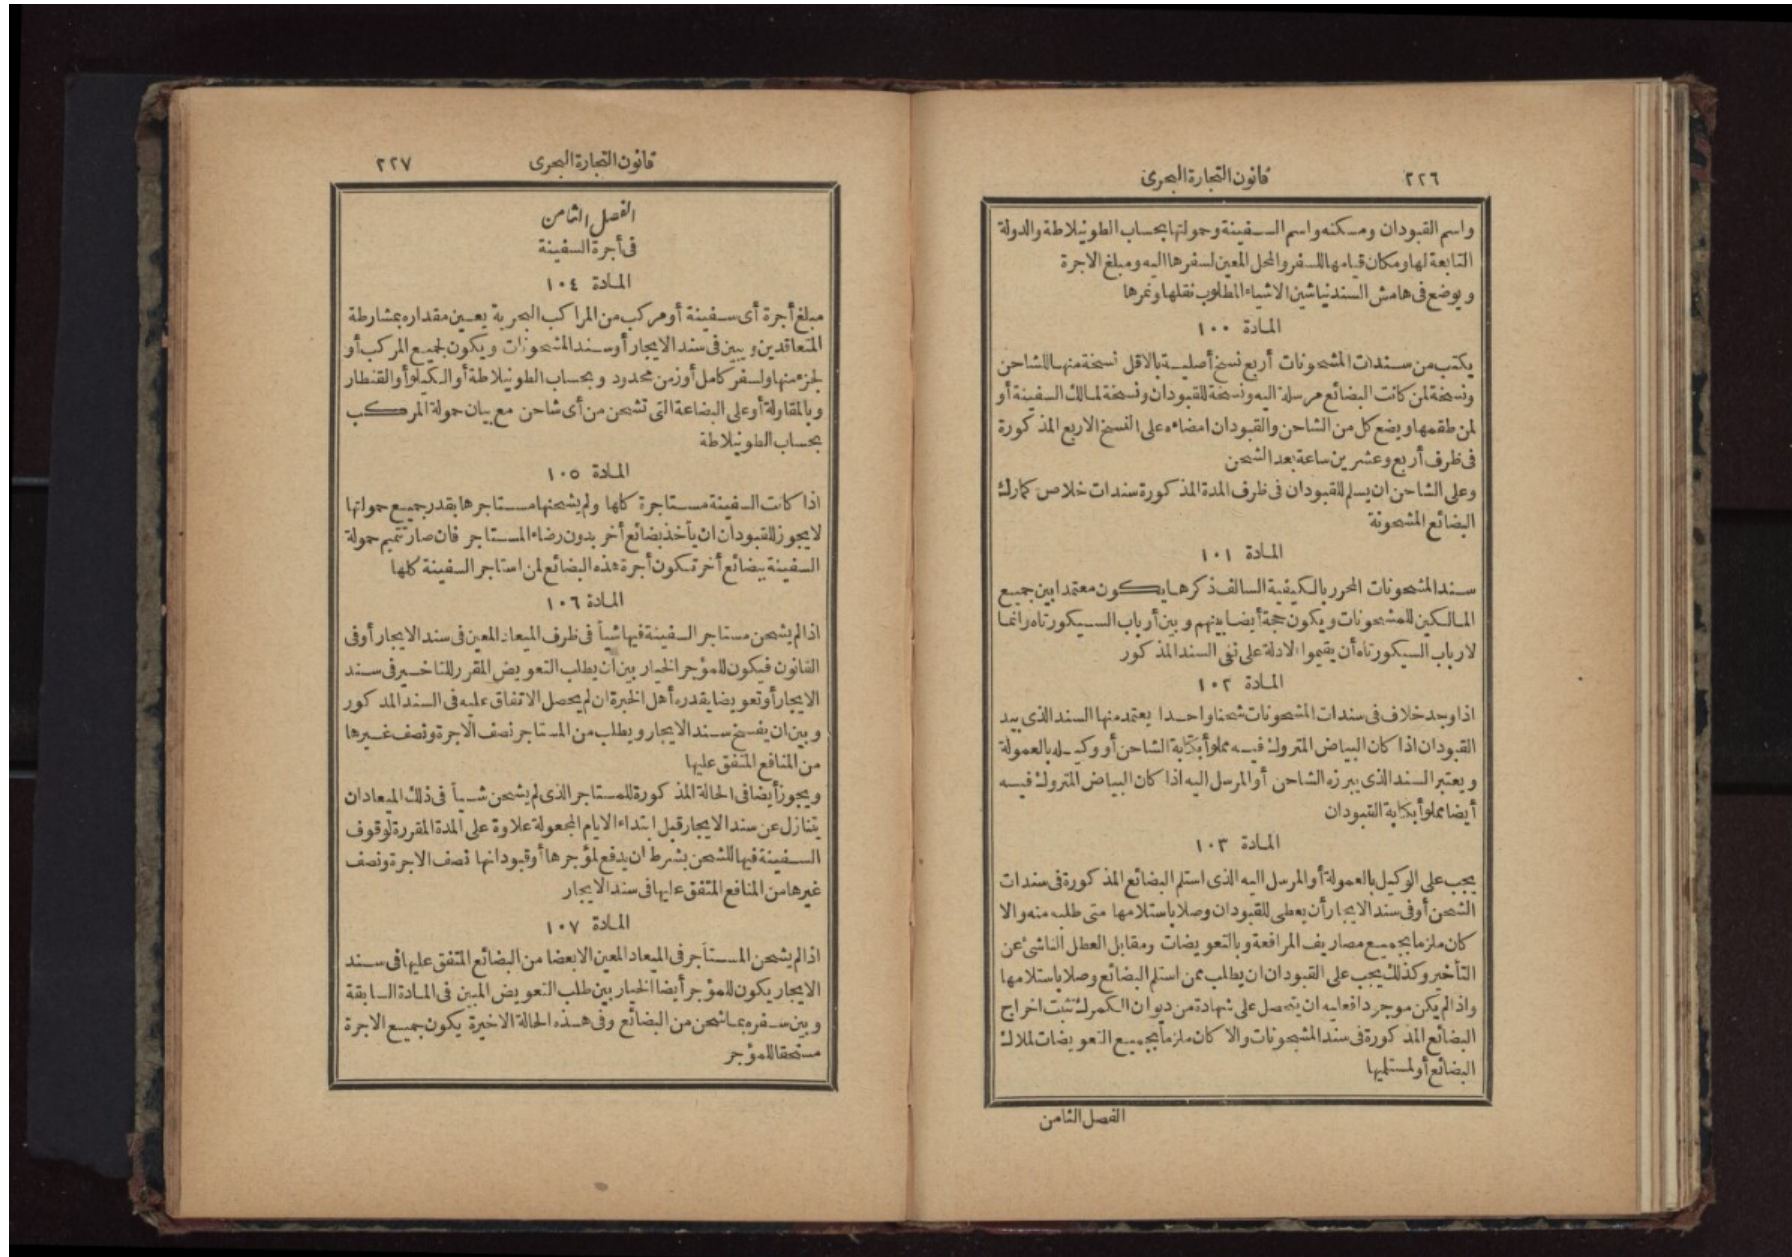 ٢٢٦
قانون التجارة البحرى
واسم القبودان ومسكنه واسم السفينة وحمولتها بحساب الطونيلاطة والدولة
التابعة لها ومكان قيامها للسفر والمحل المعين لسفرها اليه ومبلغ الاجرة
ويوضع فى هامش السند نياشين الاشياء المطلوب نقلها ونمرها
المادة ١٠٠
يكتب من سندات المشحونات أربع نسخ أصلية بالاقل نسخة منها للشاحن
ونسخة لمن كانت البضائع مرسلة اليه ونسخة للقبودان ونسخة لمالك السفينة أو
لمن طقمها ويضع كل من الشاحن والقبودان امضاءه على النسخ الاربع المذكورة
فى ظرف أربع وعشرين ساعة بعد الشحن
وعلى الشاحن ان يسلم للقبودان فى ظرف المدة المذكورة سندات خلاص كمارك
البضائع المشحونة
المادة ١٠١
سند المشحونات المحرر بالكيفية السالف ذكرها يكون معتمدا بين جميع
المالكين للمشحونات ويكون حجة أيضا بينهم وبين أرباب السيكورتاه وانما
لارباب السيكورتاه أن يقيموا الادلة على نفى السند المذكور
المادة ١٠٢
اذا وجد خلاف فى سندات المشحونات شحنا واحدا يعتمد منها السند الذى بيد
القبودان اذا كان البياض المتروك فيه مملوأ بكتابة الشاحن أو وكيله بالعمولة
ويعتبر السند الذى يبرزه الشاحن أو المرسل اليه اذا كان البياض المتروك فيه
أيضا مملوأ بكتابة القبودان
المادة ١٠٣
يجب على الوكيل بالعمولة أو المرسل اليه الذى استلم البضائع المذكورة فى سندات
الشحن أو فى سند الايجار أن يعطى للقبودان وصلا باستلامها متى طلبه منه والا
كان ملزما بجميع مصاريف المرافعة وبالتعويضات ومقابل العطل الناشئ عن
التأخير وكذلك يجب على القبودان ان يطلب ممن استلم البضائع وصلا باستلامها
واذا لم يكن موجودا فعليه ان يتحصل على شهادة من ديوان الكمرك تثبت اخراج
البضائع المذكورة فى سند المشحونات والا كان ملزما بجميع التعويضات لملاك
البضائع أو لمستلميها
الفصل الثامن
قانون التجارة البحرى
٢٢٧
الفصل الثامن
فى أجرة السفينة
المادة ١٠٤
مبلغ أجرة أى سفينة أو مركب من المراكب البحرية يعين مقداره بمشارطة
المتعاقدين ويبين فى سند الايجار أو سند المشحونات ويكون لجميع المركب أو
لجزء منها ولسفر كامل أو زمن محدود وبحساب الطونيلاطة أو الكيلو أو القنطار
وبالمقاولة أو على البضاعة التى تشحن من أى شاحن مع بيان حمولة المركب
بحساب الطونيلاطة
المادة ١٠٥
اذا كانت السفينة مستاجرة كلها ولم يشحنها مستاجرها بقدر جميع حمولتها
لا يجوز للقبودان ان يأخذ بضائع أخر بدون رضاء المستاجر فان صار تتميم حمولة
السفينة ببضائع أخر تكون أجرة هذه البضائع لمن استاجر السفينة كلها
المادة ١٠٦
اذا لم يشحن مستاجر السفينة فيها شيأ فى ظرف الميعاد المعين فى سند الايجار أو فى
القانون فيكون للمؤجر الخيار بين أن يطلب التعويض المقرر للتاخير فى سند
الايجار أو تعويضا يقدره أهل الخبرة ان لم يحصل الاتفاق عليه فى السند المذكور
وبين ان يفسخ سند الايجار ويطلب من المستاجر نصف الاجرة ونصف غيرها
من المنافع المتفق عليها
ويجوز أيضا فى الحالة المذكورة للمستاجر الذى لم يشحن شيأ فى ذلك الميعاد ان
يتنازل عن سند الايجار قبل ابتداء الايام المجعولة علاوة على المدة المقررة لوقوف
السفينة فيها للشحن بشرط ان يدفع لمؤجرها أو قبودانها نصف الاجرة ونصف
غيرها من المنافع المتفق عليها فى سند الايجار
المادة ١٠٧
اذا لم يشحن المستأجر فى الميعاد المعين الا بعضا من البضائع المتفق عليها فى سند
الايجار يكون للمؤجر أيضا الخيار بين طلب التعويض المبين فى المادة السابقة
وبين سفره بما شحن من البضائع وفى هذه الحالة الاخيرة يكون جميع الاجرة
مستحقا للمؤجر